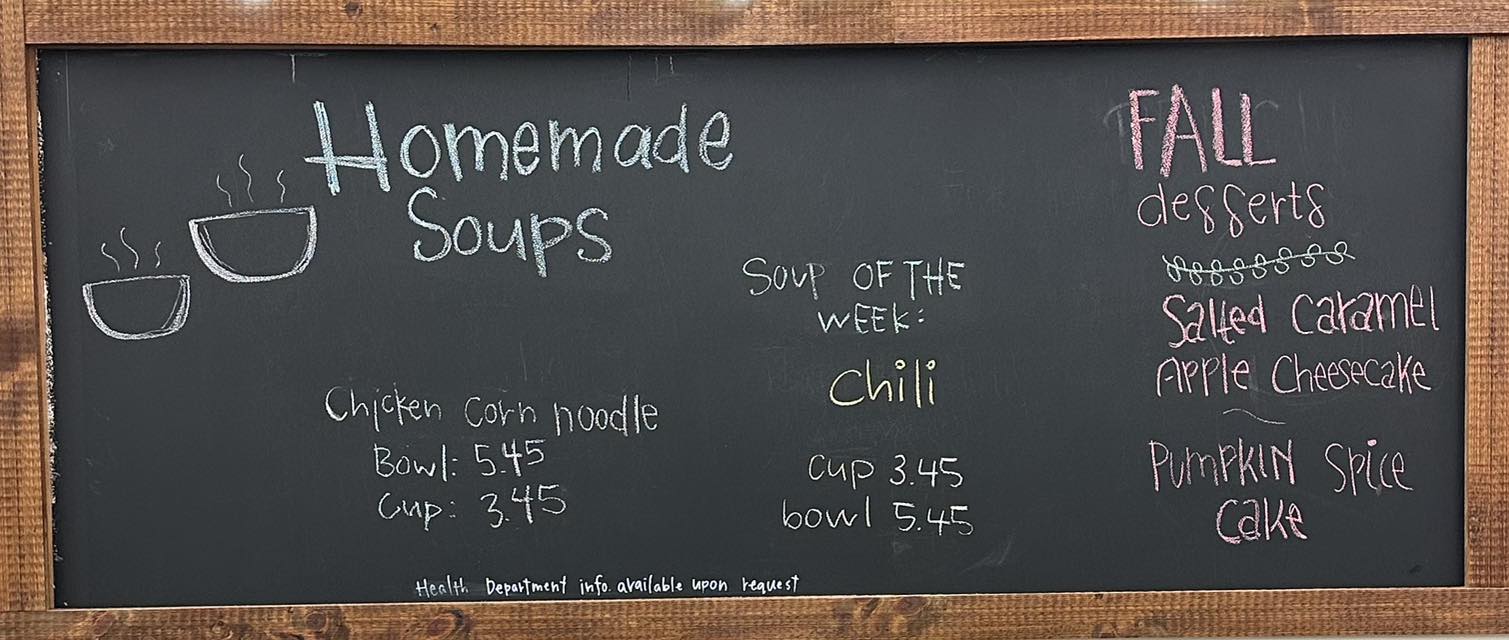 Homemade
Soups
Chicken Corn noodle
Bowl: 5.45
Cup: 3.45
Soup OF THE
WEEK:
Chili
cup 3.45
bowl 5.45
FALL
desserts
Salted Caramel
Apple Cheesecake
Pumpkin Spice
Cake
Health Department info. available upon request